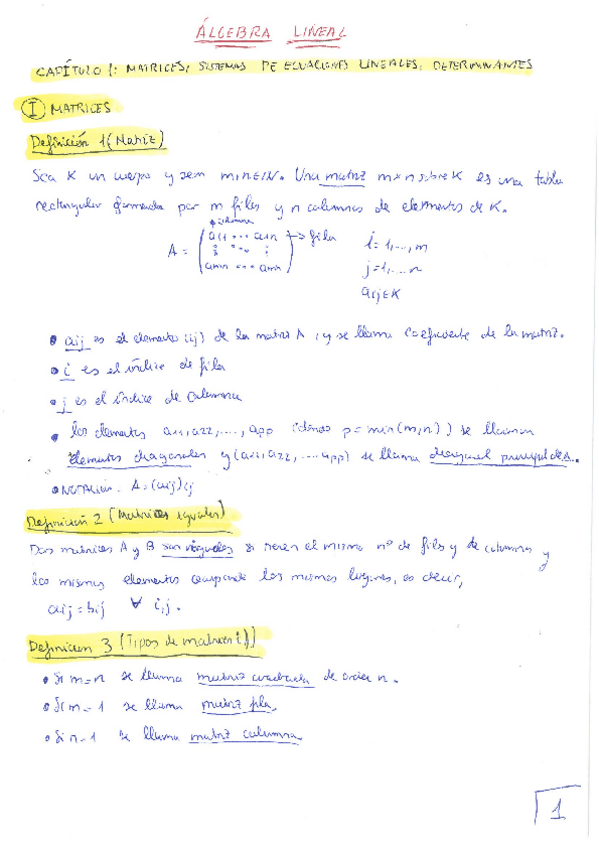 ÁLGEBRA LINEAL
CAPÍTULO 1: MATRICES, SISTEMAS DE ECUACIONES LINEALES, DETERMINANTES
I MATRICES
Definición 1 (Matriz)
Sea K un cuerpo y sean m,n∈IN. Una matriz m×n sobre K es una tabla
rectangular formada por m filas y n columnas de elementos de K.
columna
A = (a11 ... a1n → fila i=1,...,m
⋮ ⋱ ⋮ j=1,...n
am1 ... amn) aij∈K
• aij es el elemento (ij) de la matriz A, y se llama coeficiente de la matriz.
• i es el índice de fila
• j es el índice de columna
• los elementos a11, a22, ..., app (donde p = min(m,n)) se llaman
elementos diagonales y (a11, a22, ... app) se llama diagonal principal de A.
• NOTACIÓN: A = (aij)ij
Definición 2 (Matrices iguales)
Dos matrices A y B son iguales si tienen el mismo nº de filas y de columnas y
los mismos elementos los mismos lugares, es decir,
aij = bij ∀ i,j.
Definición 3 (Tipos de matrices)
• Si m=n se llama matriz cuadrada de orden n.
• Si m=1 se llama matriz fila
• Si n=1 se llama matriz columna
1